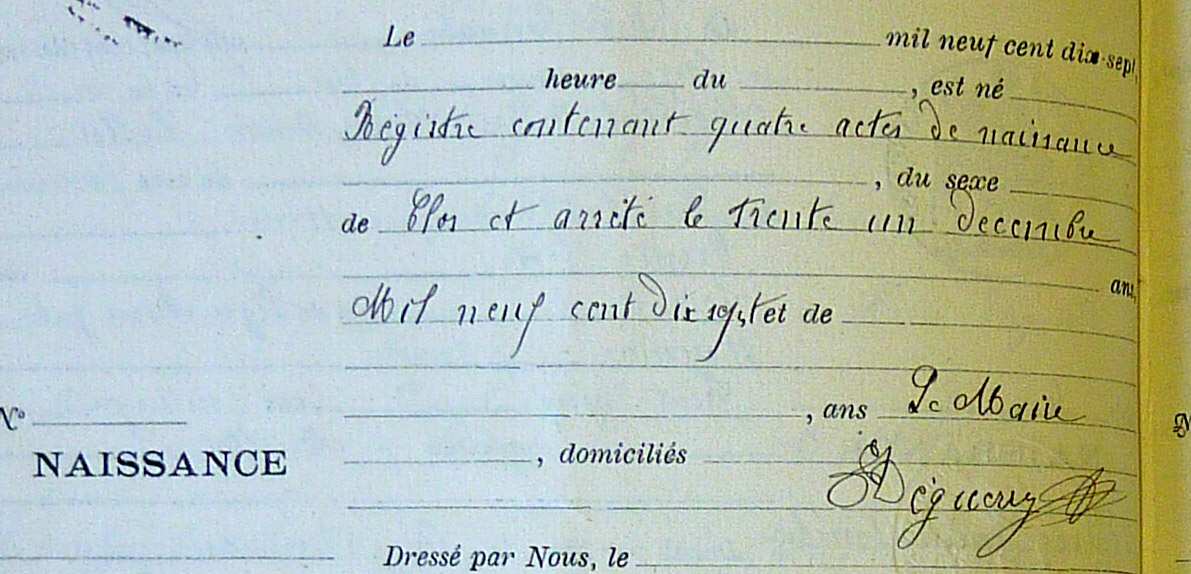 Le mil neuf cent dix-sept,
heure du , est né
Régistre contenant quatre actes de naissance
, du sexe
de Clos et arrêté le trente un decembre
ans,
Mil neuf cent dix sept et de
, ans Le Maire
N°
NAISSANCE , domiciliés
Dressé par Nous, le